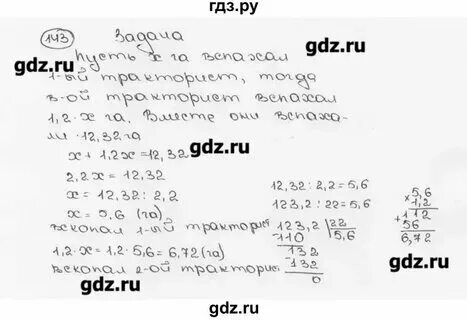 гдз.ру
143 Задача
Пусть x га вспахал
gdz.ru gdz.ru
1-ый тракторист, тогда
в-ой тракторист вспахал
1,2·x га. Вместе они вспаха-
ли 12,32 га
gdz.ru
x + 1,2x = 12,32
2,2x = 12,32
x = 12,32 : 2,2
x = 5,6 (га)
вскопал 1-ый тракторист
1,2·x = 1,2·5,6 = 6,72 (га)
вскопал 2-ой тракторис
12,32 : 2,2 = 5,6
123,2 : 22 = 5,6
123,2 | 22
-110 | 5,6
-132
132
0
×5,6
1,2
+112
56
6,72
gdz.ru
gdz.ru
gdz.ru